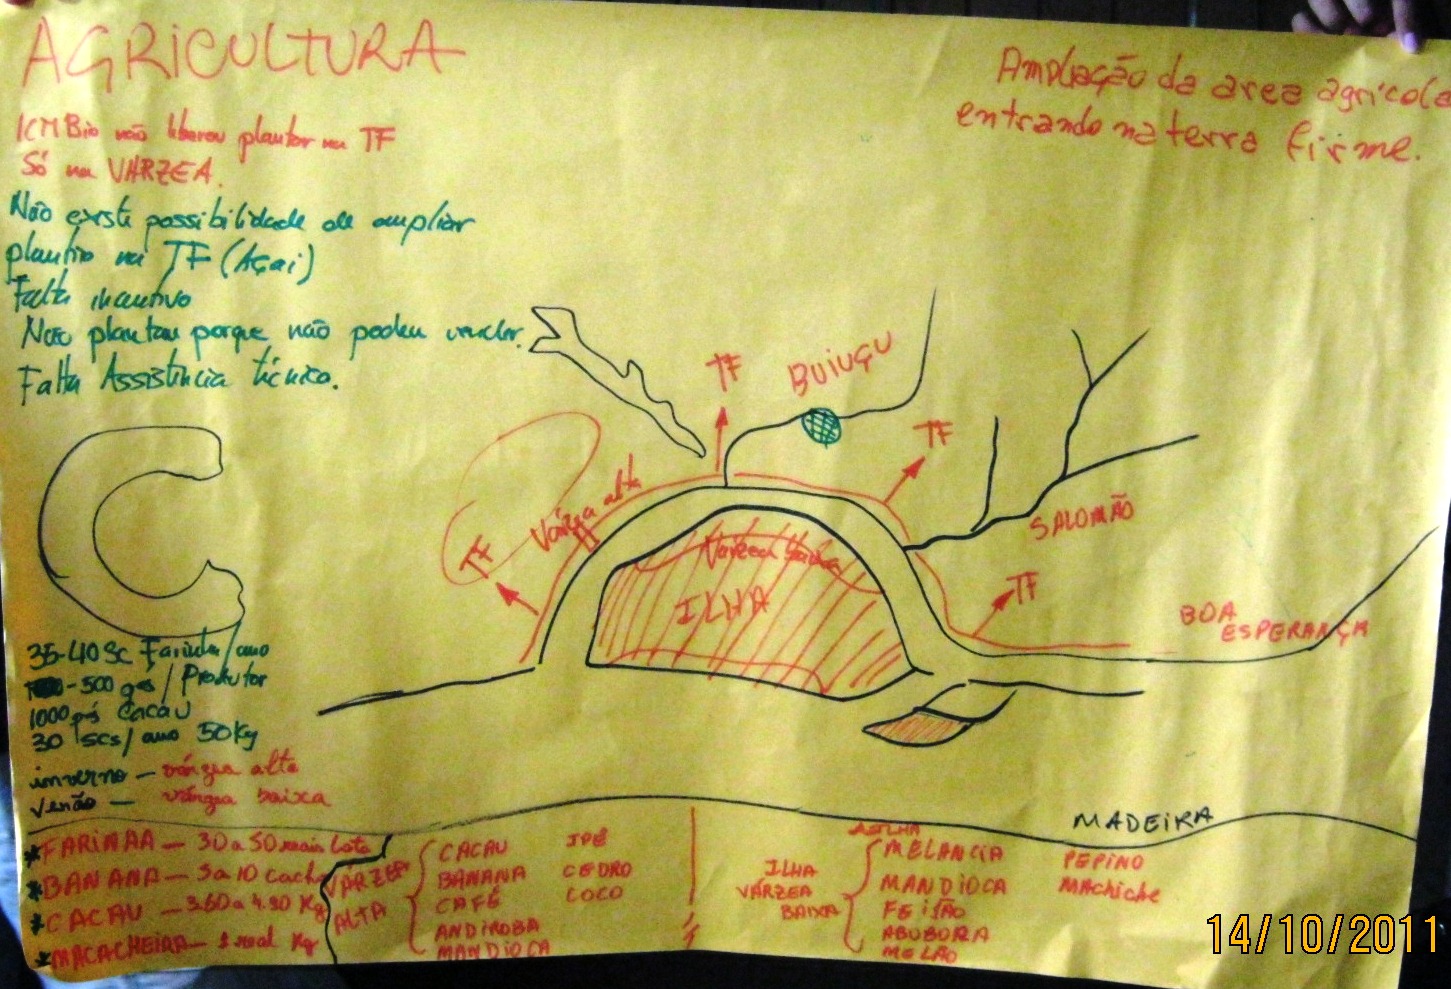 AGRICULTURA
Ampliação da area agricola
entrando na terra firme.
ICMBio não liberou plantar na TF
Só na VÁRZEA.
Não existe possibilidade de ampliar
plantio na TF (Açai)
Falta incentivo
Não plantam porque não podem vender.
Falta Assistência técnica.
TF
BUIUÇU
TF
Várzea alta
TF
SALOMÃO
Várzea baixa
ILHA
TF
BOA
ESPERANÇA
35-40 Sc Farinha/ano
-500 / Produtor
1000 pés Cacau
30 scs/ano 50Kg
inverno - várzea alta
verão - várzea baixa
MADEIRA
*FARINHA - 30 a 50 reais lata
*BANANA - 5 a 10 cacho
*CACAU - 3.60 a 4.30 Kg
*MACACHEIRA - 1 real Kg
VÁRZEA
ALTA
CACAU
BANANA
CAFÉ
ANDIROBA
MANDIOCA
IPÊ
CEDRO
COCO
ILHA
VÁRZEA
BAIXA
MELANCIA
MANDIOCA
FEIJÃO
ABUBORA
MELÃO
PEPINO
MACHICHE
14/10/2011